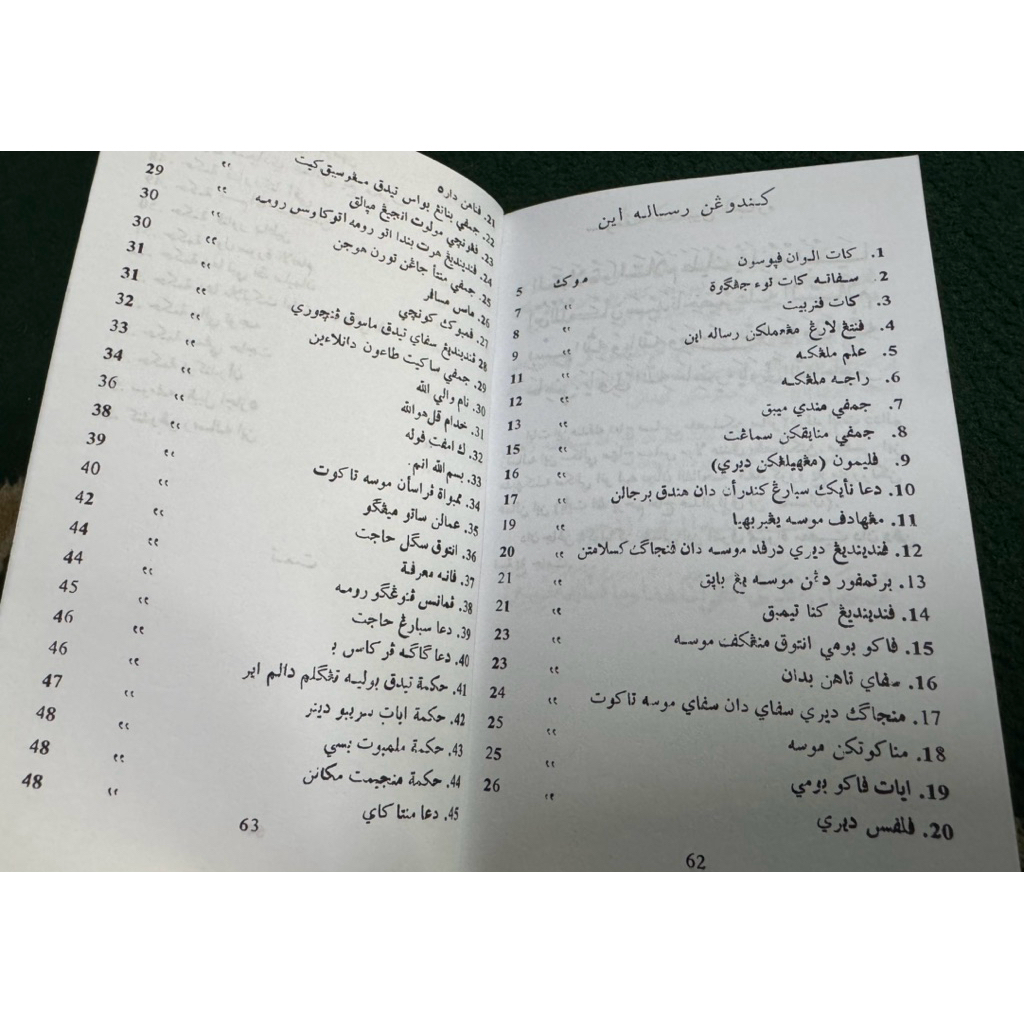 کندوڠن رساله اين
1. کات الوان ڤپوسون موک 5
2. سفاته کات توء جڤڬوة " 7
3. کات ڤنربيت " 8
4. ڤنتڠ لارڠ مڠعملکن رساله اين " 9
5. علم ملڠکه " 11
6. راجه ملڠکه " 12
7. جمڤي مندي ميبق " 13
8. جمڤي منايقکن سماڠت " 15
9. ڤليمون (مڠهيلڠکن ديري) " 16
10. دعا نأيک سبارڠ کندرأن دان هندق برجالن " 17
11. مڠهادف موسه يڠبربهيا " 19
12. ڤنديندڠ ديري درڤد موسه دان ڤنجاڬ کسلامتن " 20
13. برتمڤور دڠن موسه يڠ باپق " 21
14. ڤنديندڠ کنا تيمبق " 21
15. ڤاکو بومي انتوق منڠکف موسه " 23
16. سڤاي تاهن بدان " 23
17. منجاڬ ديري سڤاي دان سڤاي موسه تاکوت " 24
18. مناکوتکن موسه " 25
19. ايات ڤاکو بومي " 25
20. ڤلڤس ديري " 26
62
21. ڤاهن داره
22. جمڤي بناتڠ بواس تيدق مڠوسيق کيت " 29
23. ڤڠونچي مولوت انجيڠ مپالق " 30
24. ڤنديندڠ هرت بندا اتو رومه اتو کاوسن رومه " 30
25. جمڤي منتأ جاڠن تورن هوجن " 31
26. ماس مسافر " 31
27. ڤمبوک کونچي " 32
28. ڤنديندڠ سڤاي تيدق ماسوق ڤنچوري " 33
29. جمڤي ساکيت طاعون دانلاءين " 34
30. نام والي الله " 36
31. خدام قل هو الله " 38
32. ک امڤت ڤوله " 39
33. بسم الله انم. " 40
34. ممبواة ڤراسأن موسه تاکوت " 42
35. عملن ساتو ميڠڬو " 44
36. انتوق سڬل حاجت " 44
37. ڤانه معرفة " 45
38. ڤمانس ڤنوڠڬو رومه " 46
39. دعا سبارڠ حاجت " 46
40. دعا ڬاڬه ڤرکاس ٢ " 47
41. حکمة تيدق بوليه تڠڬلم دالم اير " 48
42. حکمة ايات سريبو دينر " 48
43. حکمة ملمبوت بسي " 48
44. حکمة منجيمت مکانن
45. دعا منتا کاي
63